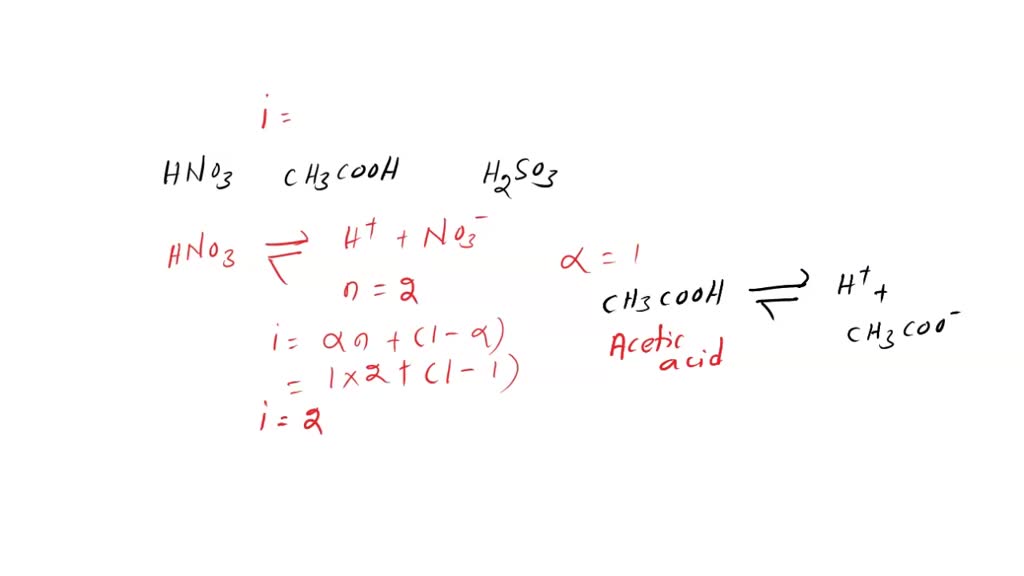 i =
HNO3 CH3COOH H2SO3
HNO3 ⇌ H+ + NO3-
n = 2
i = αn + (1 - α)
= 1 × 2 + (1 - 1)
i = 2
α = 1
CH3COOH ⇌ H+ +
CH3COO-
Acetic
acid